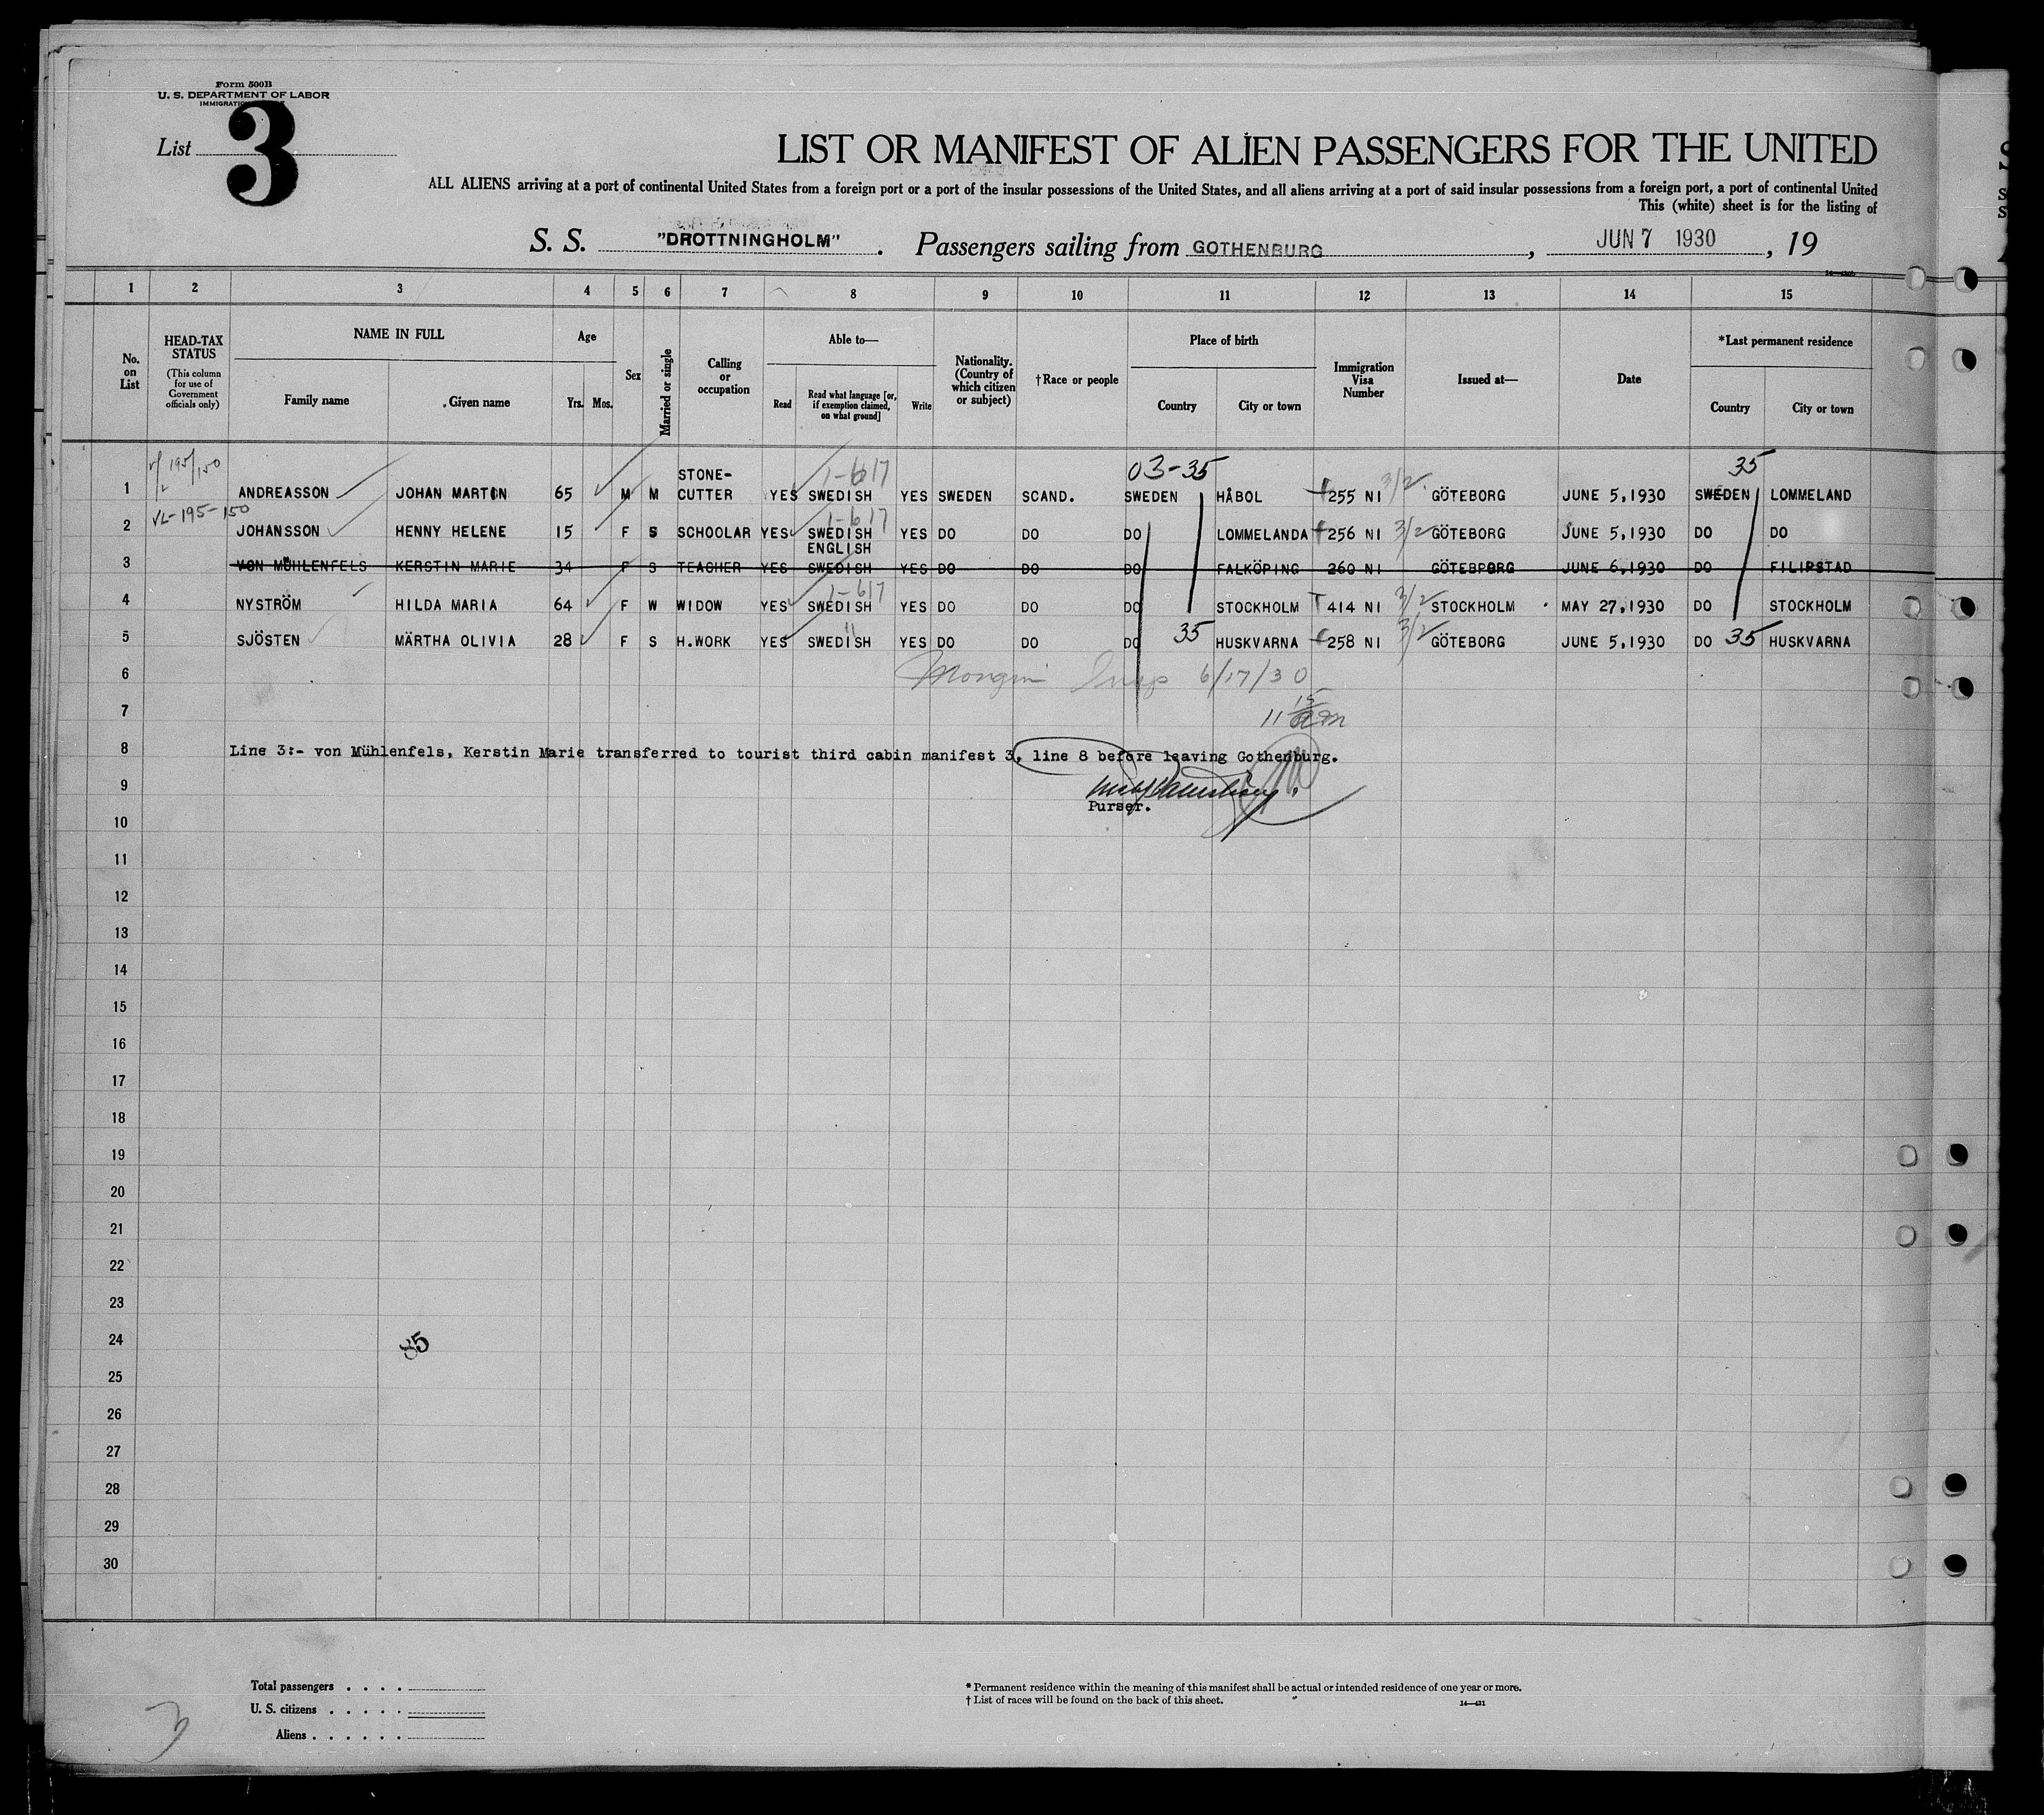 Form 500B
U. S. DEPARTMENT OF LABOR
List 3
LIST OR MANIFEST OF ALIEN PASSENGERS FOR THE UNITED
ALL ALIENS arriving at a port of continental United States from a foreign port or a port of the insular possessions of the United States, and all aliens arriving at a port of said insular possessions from a foreign port, a port of continental United
This (white) sheet is for the listing of
S. S. "DROTTNINGHOLM". Passengers sailing from GOTHENBURG, JUN 7 1930, 19
1 2 3 4 5 6 7 8 9 10 11 12 13 14 15
No. on List
HEAD-TAX STATUS
(This column for use of Government officials only)
NAME IN FULL
Family name
Given name
Age
Yrs. Mos.
Sex
Married or single
Calling or occupation
Able to—
Read
Read what language [or, if exemption claimed, on what ground]
Write
Nationality. (Country of which citizen or subject)
†Race or people
Place of birth
Country
City or town
Immigration Visa Number
Issued at—
Date
*Last permanent residence
Country
City or town
195/150
1-617
03-35
35
1 ANDREASSON JOHAN MARTIN 65 M M STONE-CUTTER YES SWEDISH YES SWEDEN SCAND. SWEDEN HÅBOL 255 NI 3/2 GÖTEBORG JUNE 5,1930 SWEDEN LOMMELAND
VL-195-150
1-617
2 JOHANSSON HENNY HELENE 15 F S SCHOOLAR YES SWEDISH YES DO DO DO LOMMELANDA 256 NI 3/2 GÖTEBORG JUNE 5,1930 DO DO
3 VON MÜHLENFELS KERSTIN MARIE 34 F S TEACHER YES ENGLISH SWEDISH YES DO DO DO FALKÖPING 260 NI GÖTEBPORG JUNE 6,1930 DO FILIPSTAD
1-617
4 NYSTRÖM HILDA MARIA 64 F W WIDOW YES SWEDISH YES DO DO DO STOCKHOLM 414 NI 3/2 STOCKHOLM MAY 27,1930 DO STOCKHOLM
5 SJÖSTEN MÄRTHA OLIVIA 28 F S H.WORK YES SWEDISH YES DO DO DO 35 HUSKVARNA 258 NI 3/2 GÖTEBORG JUNE 5,1930 DO 35 HUSKVARNA
6 6/17/30
7 11
8 Line 3:- von Mühlenfels, Kerstin Marie transferred to tourist third cabin manifest 3, line 8 before leaving Gothenburg.
9
Purser.
10
11
12
13
14
15
16
17
18
19
20
21
22
23
24
85
25
26
27
28
29
30
Total passengers . . . .
U. S. citizens . . . . .
Aliens . . . . . .
* Permanent residence within the meaning of this manifest shall be actual or intended residence of one year or more.
† List of races will be found on the back of this sheet.
14—431
3